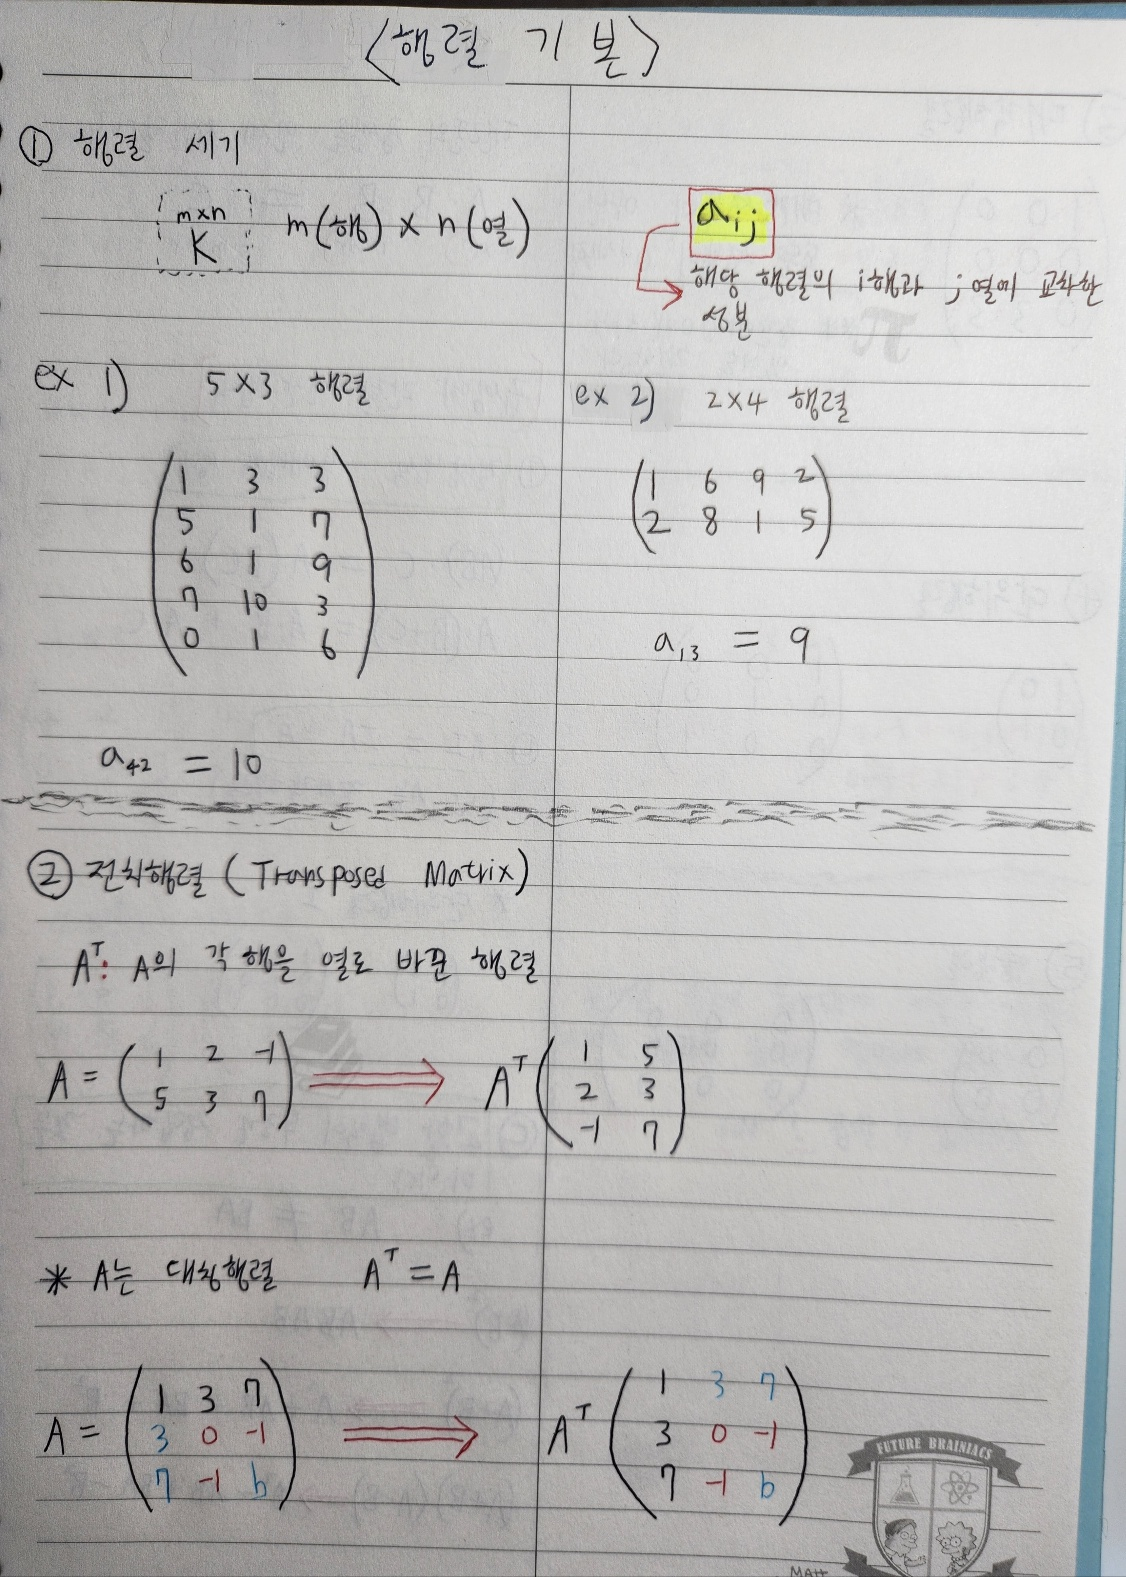 <행렬 기본>
① 행렬 세기
m×n
K
m(행) × n(열)
aij
해당 행렬의 i행과 j열에 교차한
성분
ex 1) 5×3 행렬
1 3 3
5 1 7
6 1 9
7 10 3
0 1 6
a42 = 10
ex 2) 2×4 행렬
1 6 9 2
2 8 1 5
a13 = 9
② 전치행렬 (Transposed Matrix)
Aᵀ: A의 각 행을 열로 바꾼 행렬
A = ( 1 2 -1
5 3 7 )
Aᵀ ( 1 5
2 3
-1 7 )
* A는 대칭행렬 Aᵀ = A
A = ( 1 3 7
3 0 -1
7 -1 b )
Aᵀ ( 1 3 7
3 0 -1
7 -1 b )
FUTURE BRAINIACS
MATH